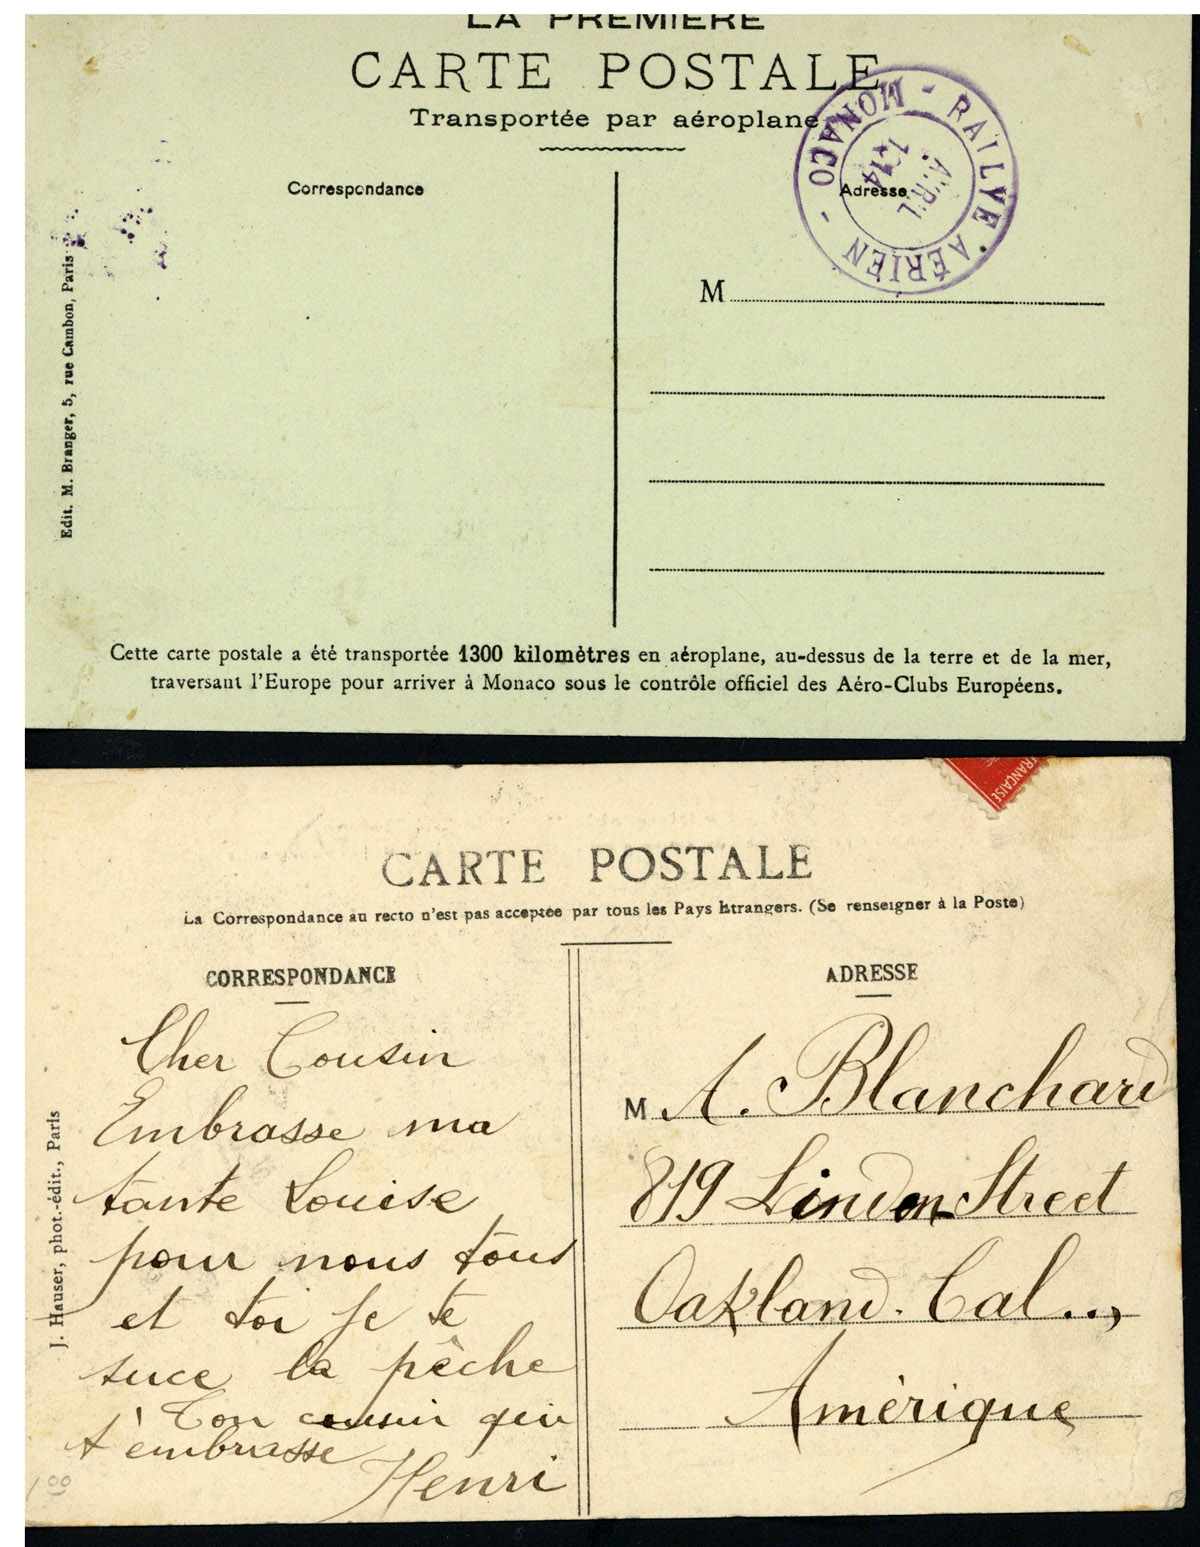 LA PREMIÈRE
CARTE POSTALE
Transportée par aéroplane
MONACO - RALLYE AÉRIEN -
AVRIL
1914
Correspondance
Adresse
M
Edit. M. Branger, 5, rue Cambon, Paris
Cette carte postale a été transportée 1300 kilomètres en aéroplane, au-dessus de la terre et de la mer,
traversant l'Europe pour arriver à Monaco sous le contrôle officiel des Aéro-Clubs Européens.
FRANÇAISE
CARTE POSTALE
La Correspondance au recto n'est pas acceptée par tous les Pays Etrangers. (Se renseigner à la Poste)
CORRESPONDANCE
Cher Cousin
Embrasse ma
tante Louise
pour nous tous
et toi je te
suce la pêche
Ton cousin qui
t'embrasse
Henri
J. Hauser, phot.-édit., Paris
1 00
ADRESSE
M A. Blanchard
819 Linden Street
Oakland. Cal..,
Amérique